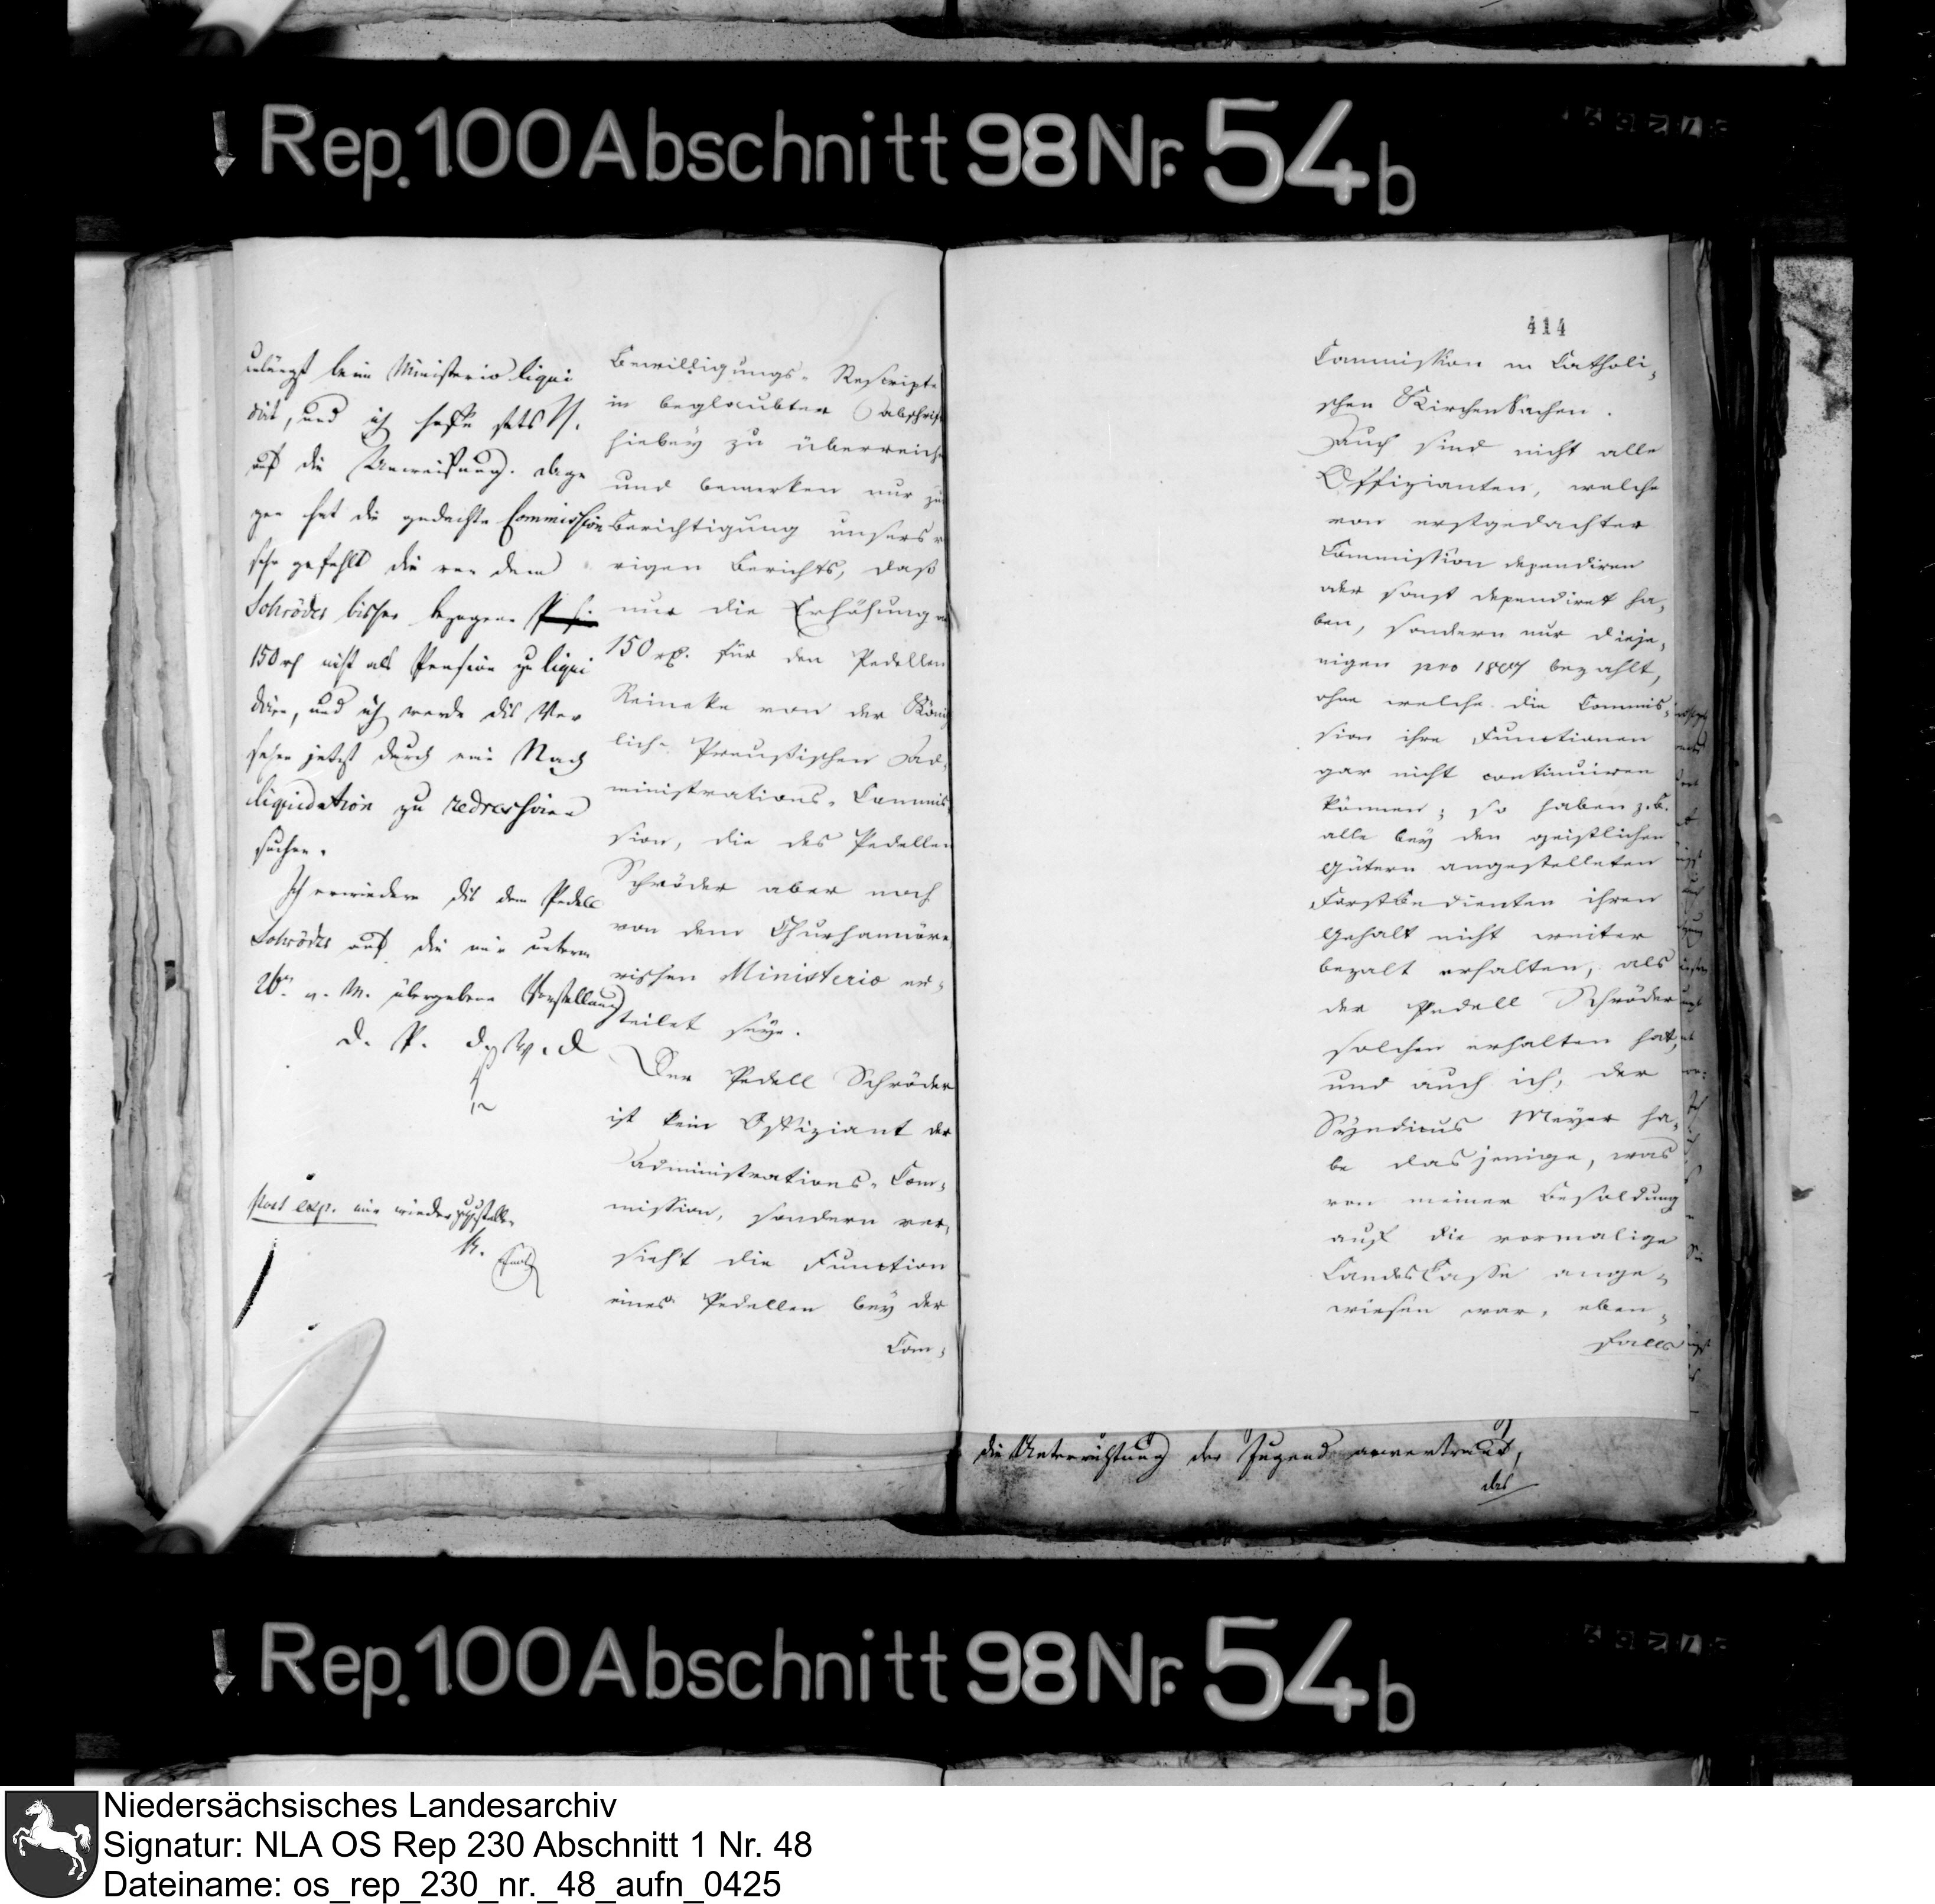 Rep. 100 Abschnitt 98 Nr. 54b
unlängst beim Ministerio liqui
dirt, und ich hoffe stets
auf die Anweisung. dage
gen hat die gedachte Commission
sehr gefehlt die von dem
Schröder bisher bezogene
150 rth nicht als Pension zu liqui
diren, und ich werde dis Ver
sehen jetzt durch eine Nach
liquidation zu redressiren
suchen.
Ich erwiedere dis dem Pedell
Schröder auf die mir unterm
26n v. M. übergebene Vorstellung
Post exp. mir wieder zuzustellen
Bewilligungs-Rescripte
in beglaubter Abschrift
hiebey zu überreichen
und bemerken nur zur
Berichtigung unsers
rigen Berichts, daß
nur die Erhöhung
150 rth. für den Pedellen
Reineke von der König
lich Preußischen Ad-
ministrations-Commis
sion, die des Pedellen
Schröder aber noch
von dem Churhannöve
rischen Ministerio er-
teilet seye.
Der Pedell Schröder
ist kein Offiziant der
Administrations-Com-
mission, sondern ver-
sieht die Function
eines Pedellen bey der
Com-
414
Commission in Catholi-
schen KirchenSachen.
Auch sind nicht alle
Offizianten, welche
von erstgedachter
Commission dependiren
oder sonst dependiret ha-
ben, sondern nur dieje-
nigen pro 1807 bezahlt,
ohne welche die Commis-
sion ihre Functionen
gar nicht continuiren
können; so haben z.B.
alle bey den geistlichen
Gütern angestelleten
Forstbedienten ihren
Gehalt nicht weiter
bezalt erhalten, als
der Pedell Schröder
solchen erhalten hat,
und auch ich, der
Syndicus Meyer ha-
be dasjenige, was
von meiner Besoldung
auf die vormalige
LandesCasse ange-
wiesen war, eben-
falls
die Unterrichtung der Jugend anvertraut,
das
Rep. 100 Abschnitt 98 Nr. 54b
Niedersächsisches Landesarchiv
Signatur: NLA OS Rep 230 Abschnitt 1 Nr. 48
Dateiname: os_rep_230_nr._48_aufn_0425